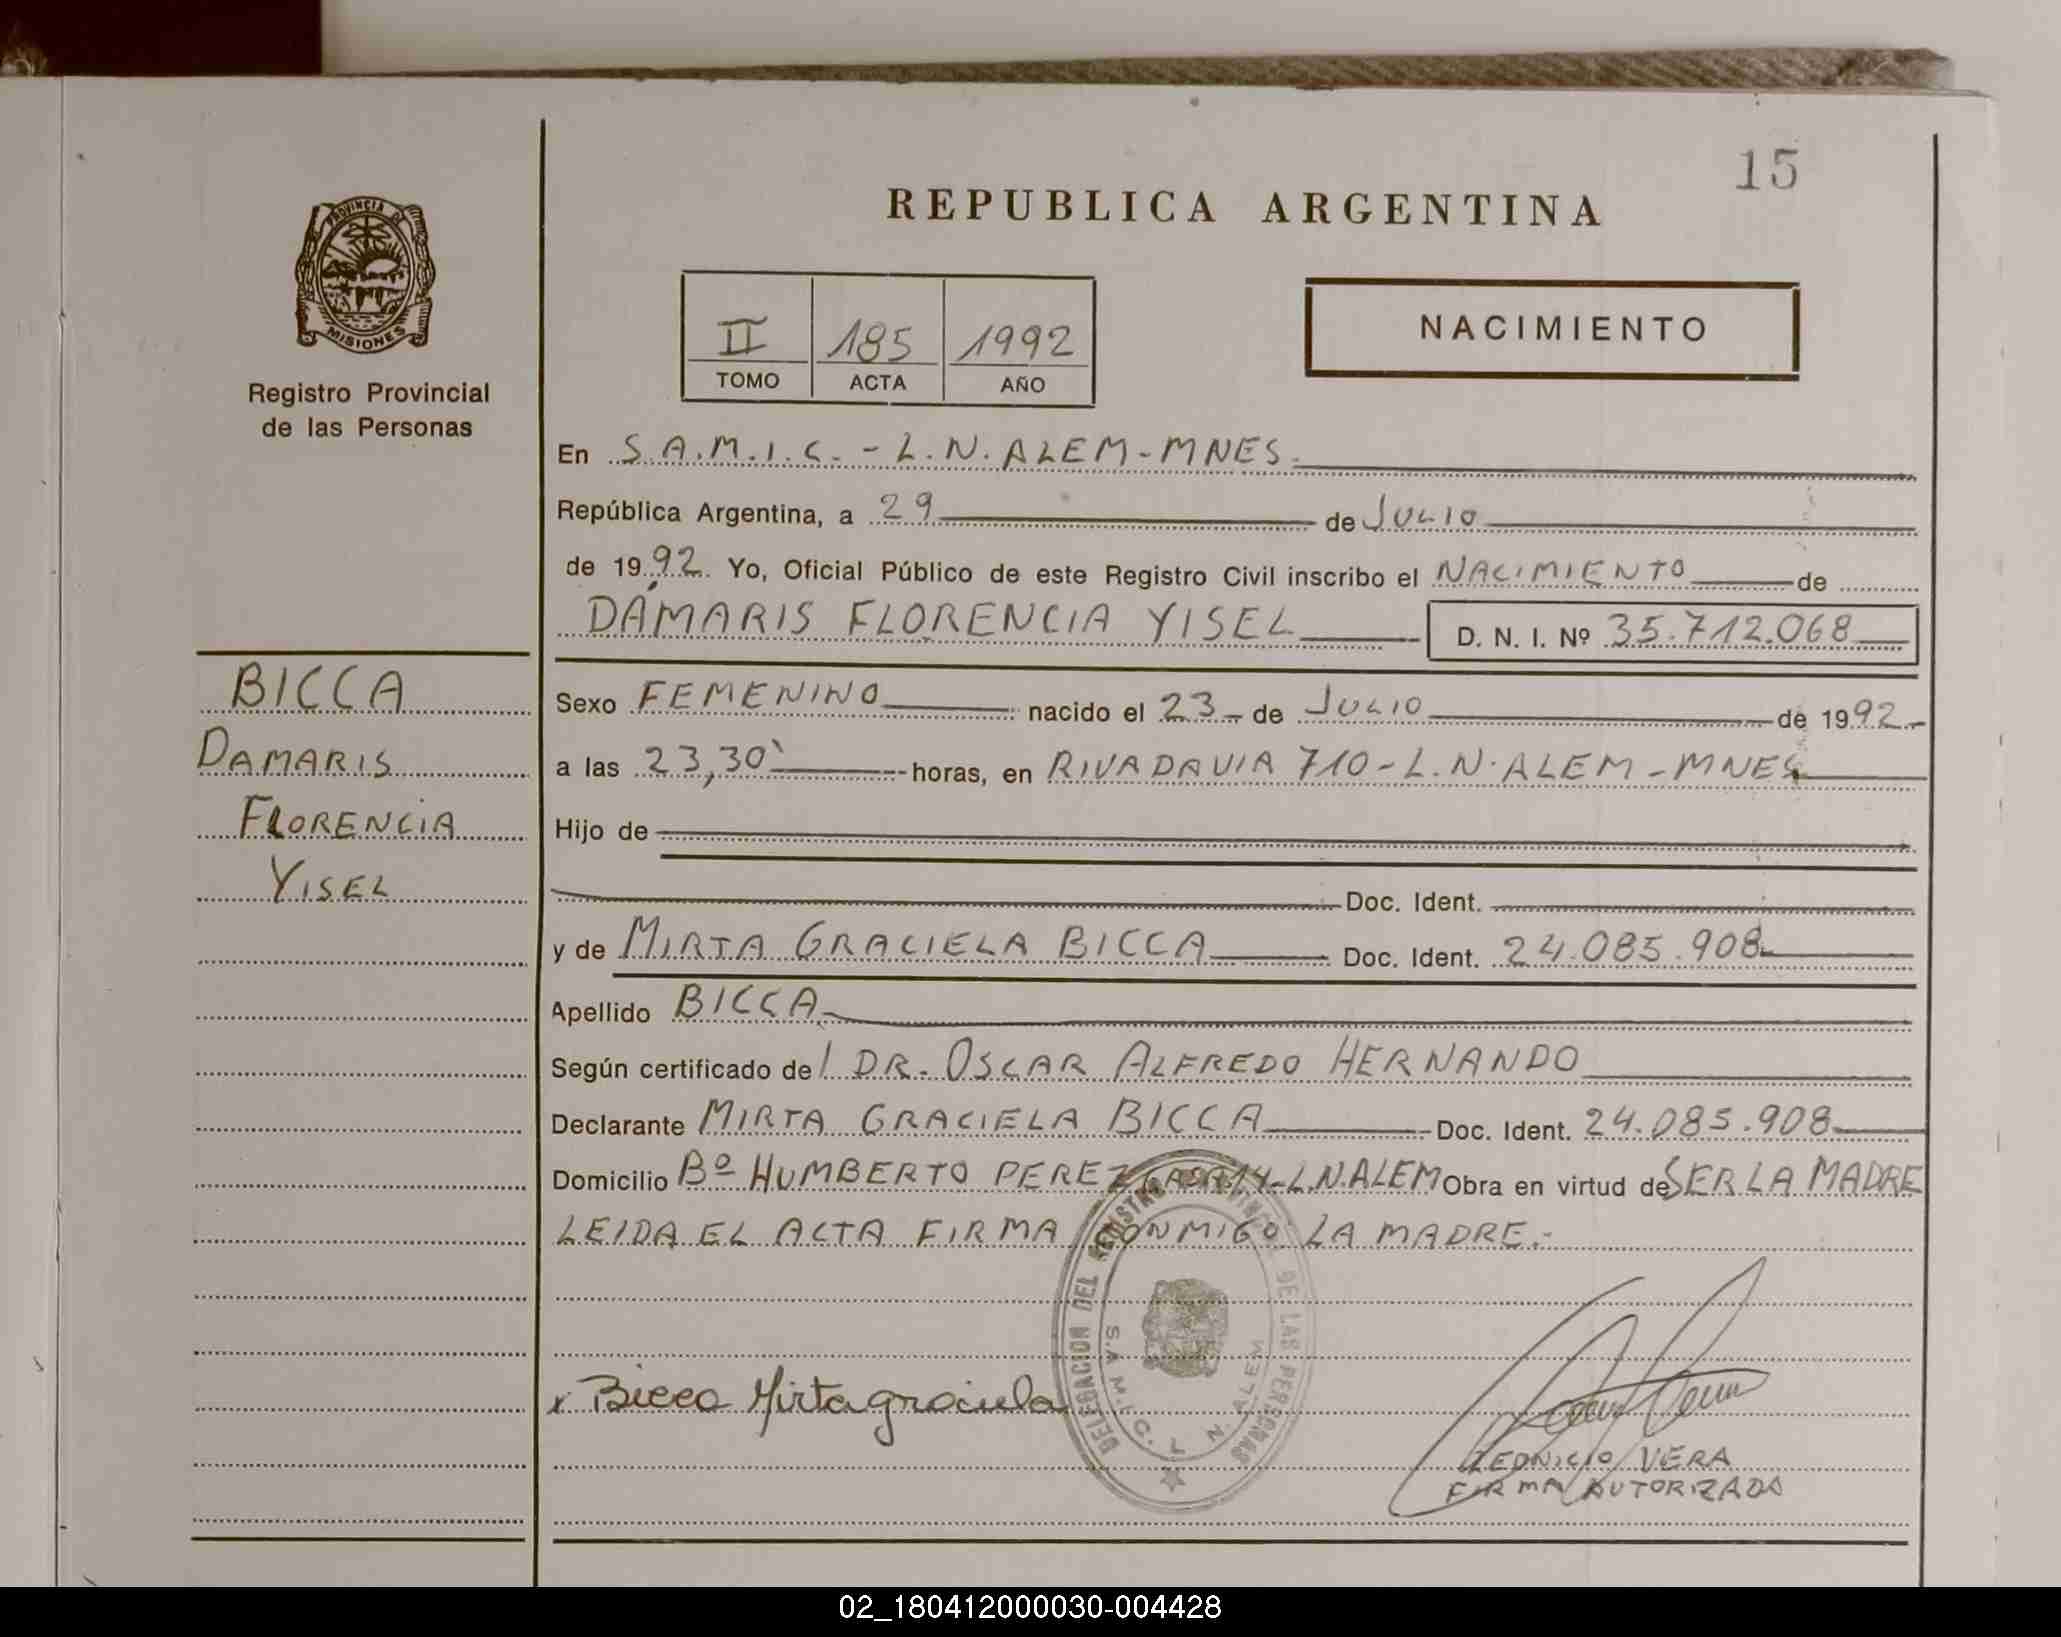 15
REPUBLICA ARGENTINA
PROVINCIA DE
MISIONES
Registro Provincial
de las Personas
II 185 1992
TOMO ACTA AÑO
NACIMIENTO
En S.A.M.I.C. - L.N. ALEM - MNES.
República Argentina, a 29 de JULIO
de 1992. Yo, Oficial Público de este Registro Civil inscribo el NACIMIENTO de
DÁMARIS FLORENCIA YISEL D. N. I. Nº 35.712.068
BICCA
DAMARIS
FLORENCIA
YISEL
Sexo FEMENINO nacido el 23 - de JULIO de 1992.-
a las 23,30' horas, en RIVADAVIA 710 - L.N. ALEM - MNES
Hijo de
Doc. Ident.
y de MIRTA GRACIELA BICCA Doc. Ident. 24.085.908
Apellido BICCA
Según certificado de l DR. OSCAR ALFREDO HERNANDO
Declarante MIRTA GRACIELA BICCA Doc. Ident. 24.085.908
Domicilio Bº HUMBERTO PEREZ CASA 14 - L.N. ALEM Obra en virtud de SER LA MADRE
LEIDA EL ACTA FIRMA CONMIGO LA MADRE.-
DELEGACION DEL REGISTRO PROVINCIAL DE LAS PERSONAS
S.A.M.I.C. L. N. ALEM
x Bicca Mirta graciela
LEONICIO VERA
FIRMA AUTORIZADA
02_180412000030-004428